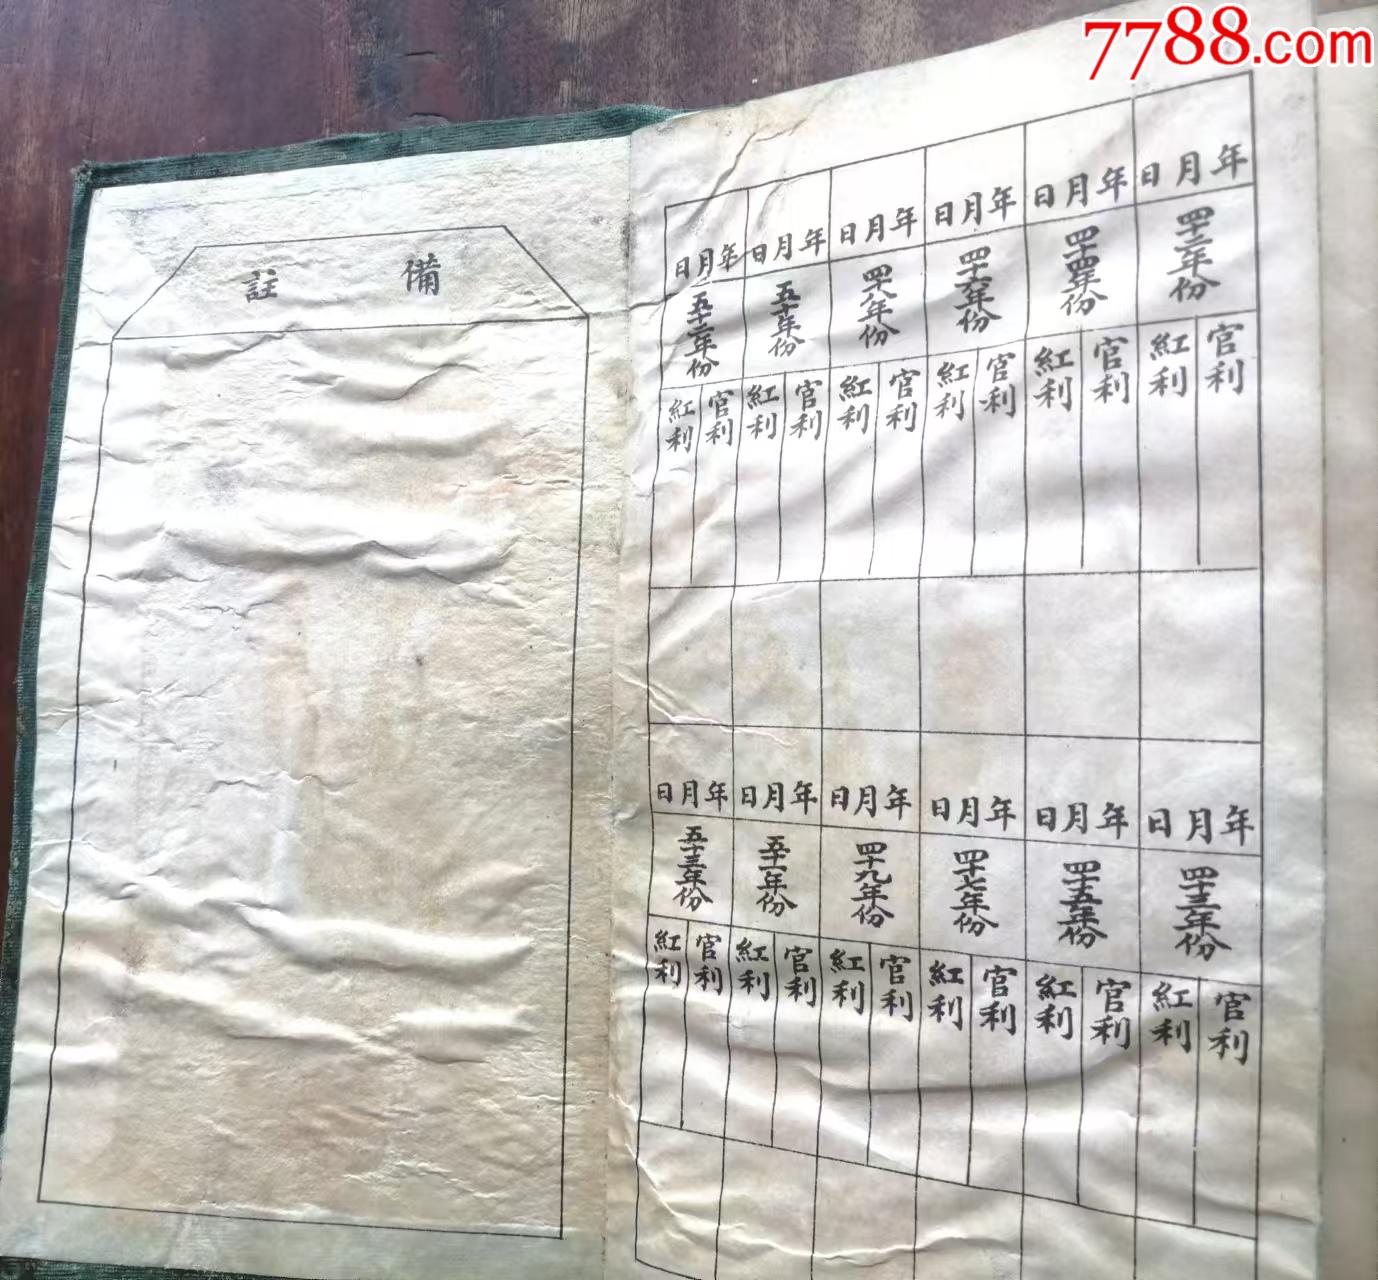 7788.com
年月日
四十二年份
官利
紅利
年月日
四十三年份
官利
紅利
年月日
四十四年份
官利
紅利
年月日
四十五年份
官利
紅利
年月日
四十六年份
官利
紅利
年月日
四十七年份
官利
紅利
年月日
四十八年份
官利
紅利
年月日
四十九年份
官利
紅利
年月日
五十年份
官利
紅利
年月日
五十一年份
官利
紅利
年月日
五十二年份
官利
紅利
年月日
五十三年份
官利
紅利
備註